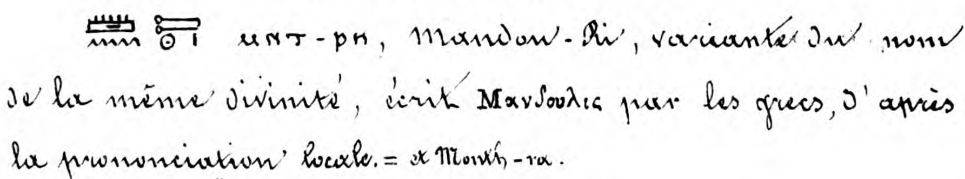 𓏠𓈖𓍿𓇳𓏤 ⲙⲛⲧ-ⲣⲏ, Mandou-Ri, variante du nom
de la même divinité, écrit Μανδουλις par les grecs, d'après
la prononciation locale. = et Month-ra.